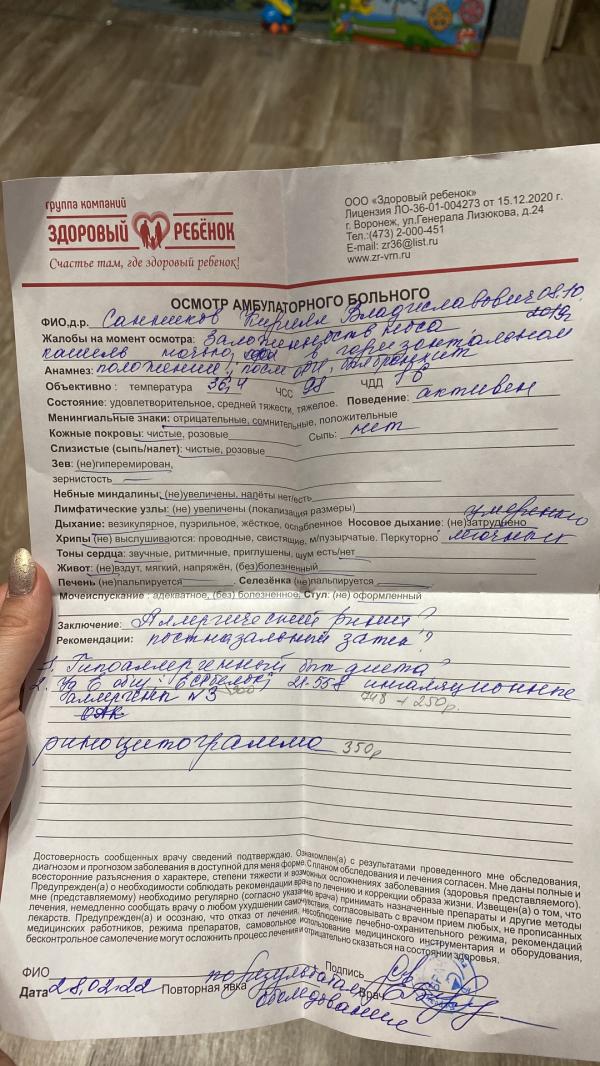 группа компаний
ЗДОРОВЫЙ РЕБЁНОК
Счастье там, где здоровый ребенок!
ООО «Здоровый ребенок»
Лицензия ЛО-36-01-004273 от 15.12.2020 г.
г. Воронеж, ул.Генерала Лизюкова, д.24
Тел.:(473) 2-000-451
E-mail: zr36@list.ru
www.zr-vrn.ru
ОСМОТР АМБУЛАТОРНОГО БОЛЬНОГО
ФИО,д.р. Санников Кирилл Владиславович 08.10.
2019
Жалобы на момент осмотра: Заложенность носа
кашель ночью, в горизонтальном
Анамнез: положении, после ОРИ,
Объективно : температура 36,4 ЧСС 98 ЧДД
Состояние: удовлетворительное, средней тяжести, тяжелое. Поведение: активен
Менингиальные знаки: отрицательные, сомнительные, положительные
Кожные покровы: чистые, розовые Сыпь: нет
Слизистые (сыпь/налет): чистые, розовые
Зев: (не)гиперемирован,
зернистость
Небные миндалины: (не)увеличены, налёты нет/есть
Лимфатические узлы: (не) увеличены (локализация размеры) умеренно
Дыхание: везикулярное, пуэрильное, жёсткое, ослабленное Носовое дыхание: (не)затруднено
Хрипы (не) выслушиваются: проводные, свистящие, м/пузырчатые. Перкуторно легочный
Тоны сердца: звучные, ритмичные, приглушены, шум есть/нет
Живот: (не)вздут, мягкий, напряжён, (без)болезненный
Печень (не)пальпируется Селезёнка (не)пальпируется
Мочеиспускание : адекватное, (без) болезненное. Стул: (не) оформленный
Заключение: Аллергический ринит?
Рекомендации: постназальный затек?
1. Гипоаллергенный быт диета?
2. Ig E общ. 21-558 ингаляционные
аллергены №3
риноцитограмма 350р
Достоверность сообщенных врачу сведений подтверждаю. Ознакомлен(а) с результатами проведенного мне обследования,
диагнозом и прогнозом заболевания в доступной для меня форме. С планом обследования и лечения согласен. Мне даны полные и
всесторонние разъяснения о характере, степени тяжести и возможных осложнениях заболевания (здоровья представляемого).
Предупрежден(а) о необходимости соблюдать рекомендации врача по лечению и коррекции образа жизни. Извещен(а) о том, что
мне (представляемому) необходимо регулярно (согласно указаниям врача) принимать назначенные препараты и другие методы
лечения, немедленно сообщать врачу о любом ухудшении самочувствия, согласовывать с врачом прием любых, не прописанных
лекарств. Предупрежден(а) и осознаю, что отказ от лечения, несоблюдение лечебно-охранительного режима, рекомендаций
медицинских работников, режима препаратов, самовольное использование медицинского инструментария и оборудования,
бесконтрольное самолечение могут осложнить процесс лечения и отрицательно сказаться на состоянии здоровья.
ФИО Подпись
Дата 28.02.22 Повторная явка по результатам Врач
обследования